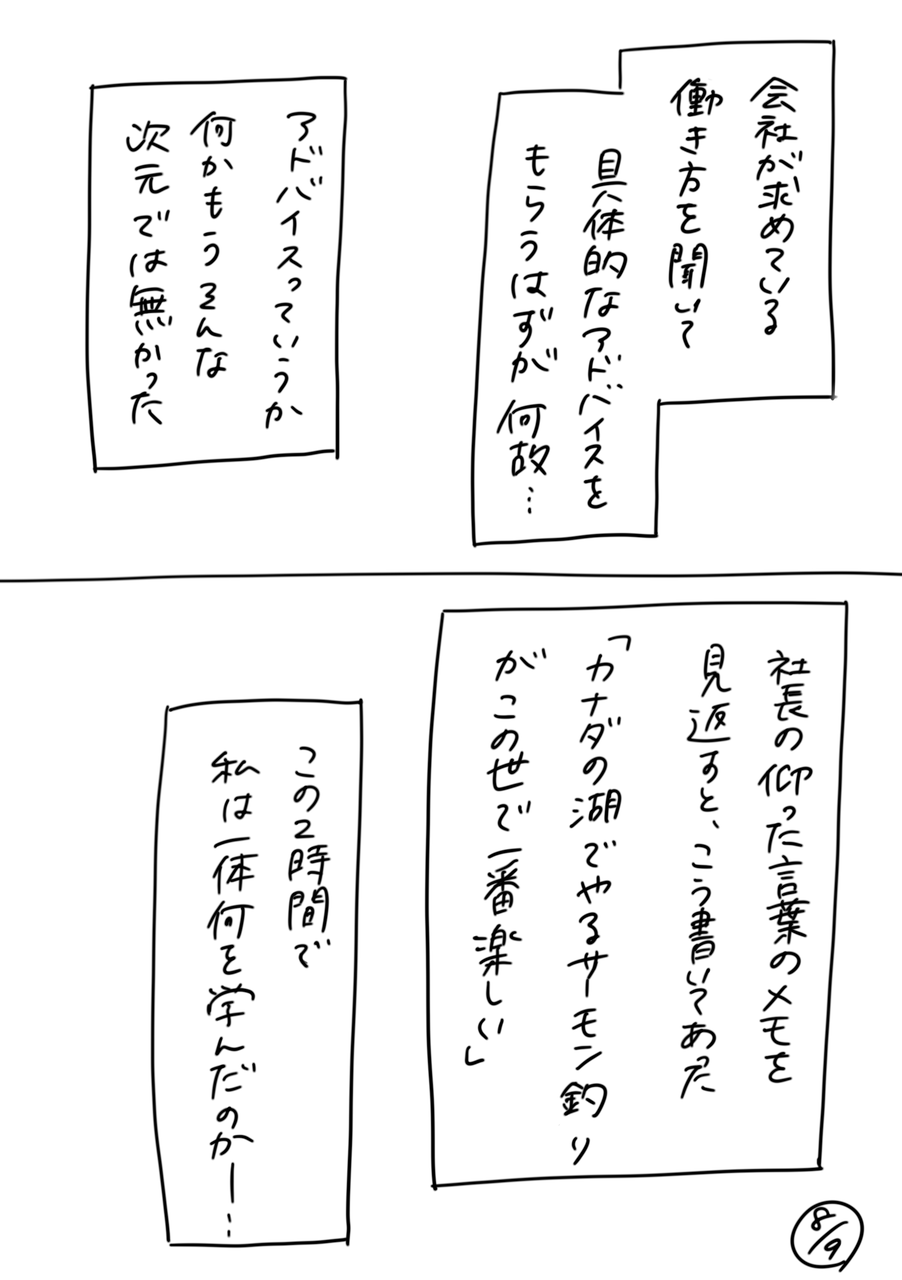 会社が求めている
働き方を聞いて
具体的なアドバイスを
もらうはずが何故…
アドバイスっていうか
何かもうそんな
次元では無かった
社長の仰った言葉のメモを
見返すと、こう書いてあった
「カナダの湖でやるサーモン釣り
がこの世で一番楽しい」
この2時間で
私は一体何を学んだのかー…
8/9